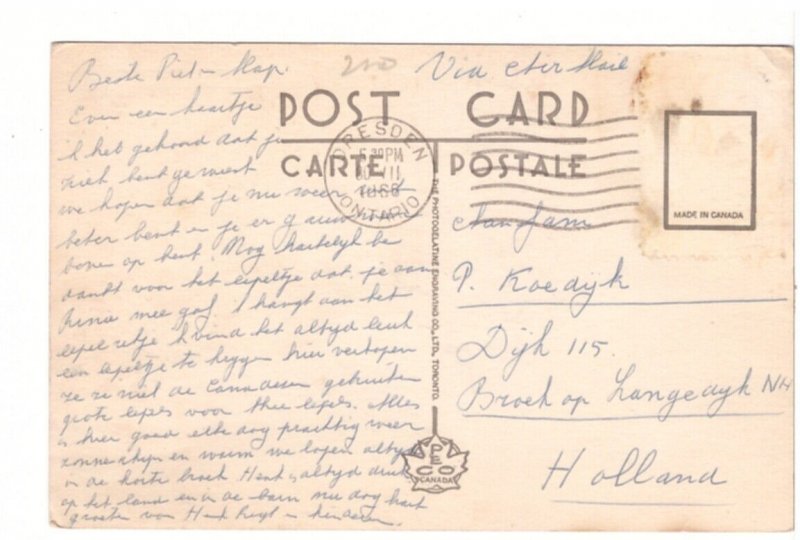 Beste Piet - Map.
Even een kaartje
ik heb gehoord dat je
ziek bent geweest
we hopen dat je nu weer wat
beter bent en je er gauw
boven op bent. Nog hartelijk be
dankt voor het lepeltje dat je aan
mee gaf 't hangt aan het
lepel rekje ik vind het altyd leuk
een lepeltje te krygen hier verkopen
ze ze niet de Canadezen gebruiken
grote lepels voor thee lepels. Alles
is hier goed elke dag prachtig weer
zonneschyn en warm we lopen altyd
in de korte broek Henk is altyd druk
op het land en in de barn nu dag hart
groeten van Henk en kinderen.
200
Via Air Mail
POST CARD
CARTE POSTALE
DRESDEN
PM
VII
1968
ONTARIO
MADE IN CANADA
THE PHOTOGELATINE ENGRAVING CO., LTD., TORONTO.
PECO
CANADA
Aan Fam
P. Koedijk
Dijk 115
Broek op Langedyk NH
Holland